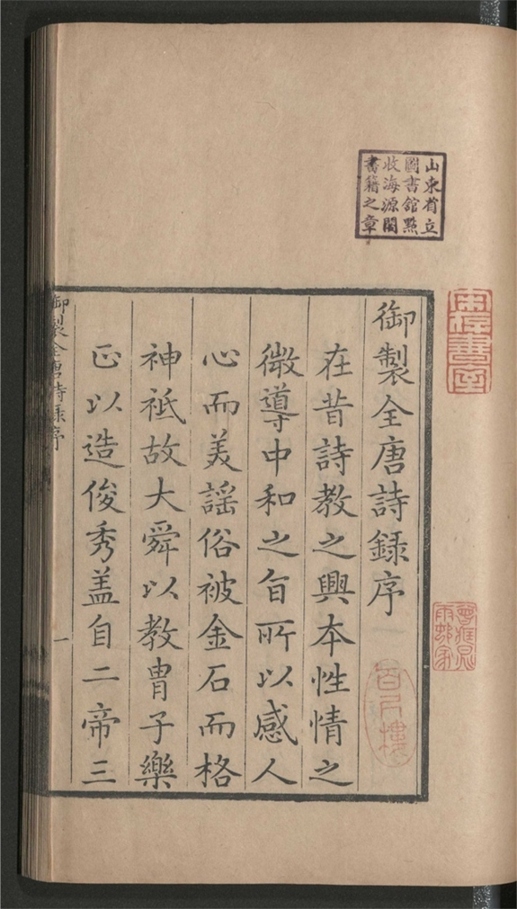 山東省立
圖書館點
收海源閣
書籍之章
宋存書室
御製全唐詩録序
在昔詩教之興本性情之
微導中和之旨所以感人
心而美謡俗被金石而格
神祗故大舜以教胄子樂
正以造俊秀盖自二帝三
御製全唐詩録序
一